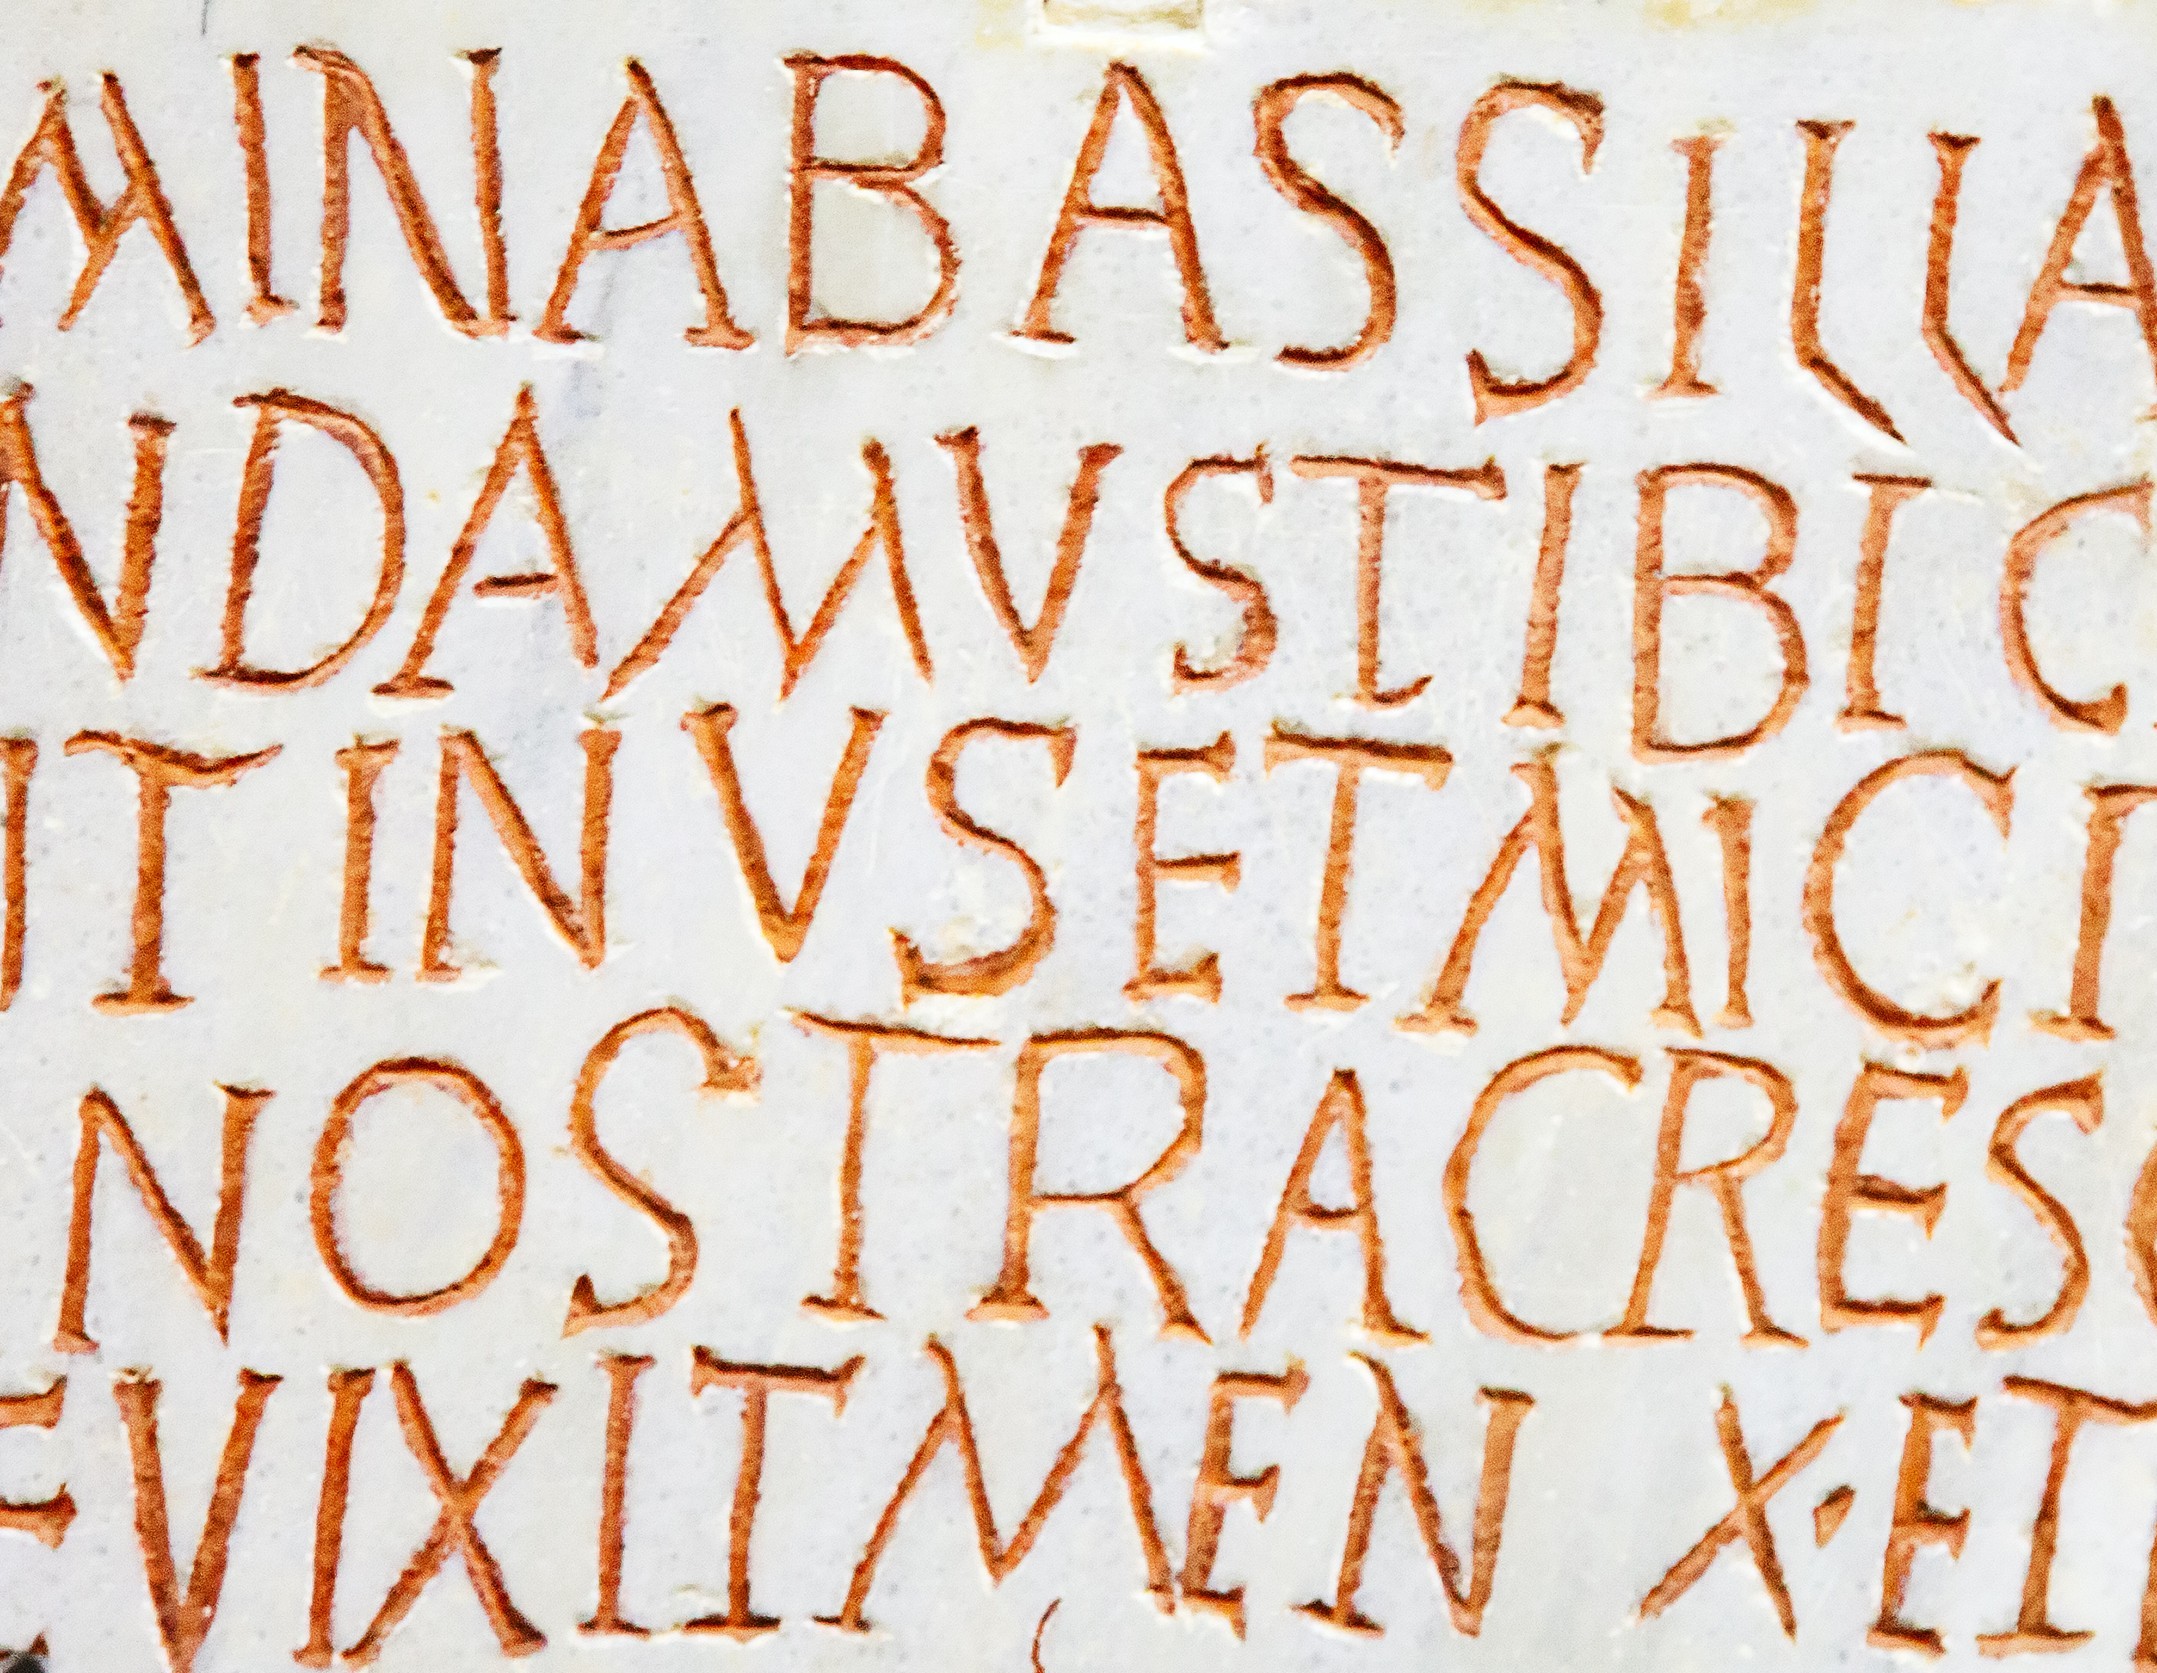 MINABASSILLA
NDAMVSTIBIC
ITINVSETMICI
NOSTRACRESC
EVIXITMEN X·ET